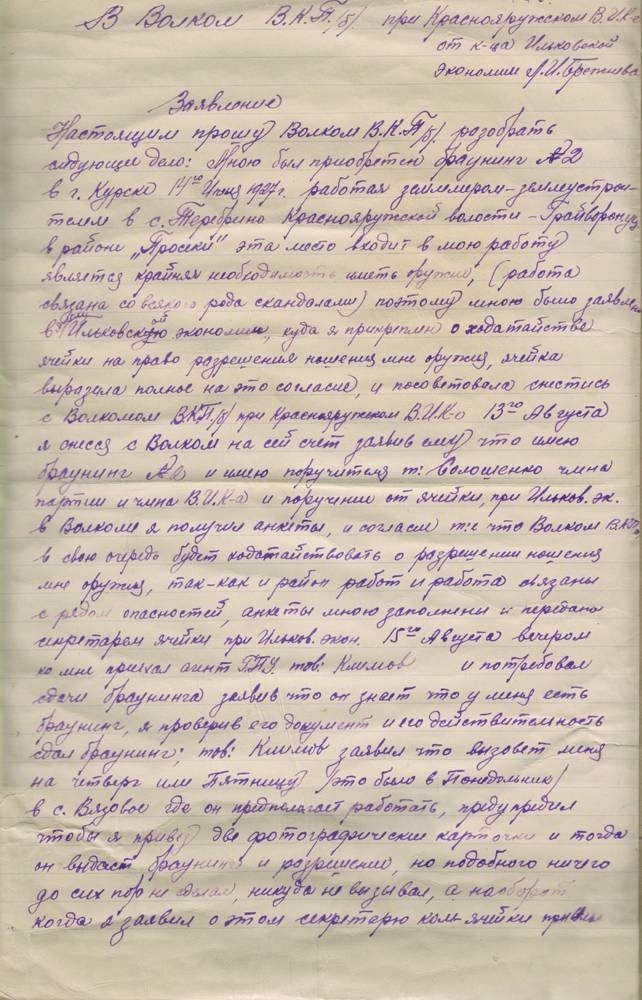 В Волком В.К.П./б/. при Краснояружском В.И.К-е
от к-ца Ильковской
экономии Л.И. Брежнева
Заявление
Настоящим прошу Волком В.К.П/б/ разобрать
следующее дело: Мною был приобретен браунинг №2
в г. Курске 14го 1927г. работая землемером-землеустрои-
телем в с. Теребрино Краснояружской волости - Грайворон уезд.
в районе „Просеки" эта место входит в мою работу
является крайняя необходимость иметь оружие, (работа
связана со всякого рода скандалами) поэтому мною было заявлено
в Ильковской экономии, куда я прикреплен о ходатайстве
ячейки на право разрешения ношения мне оружия, ячейка
выразила полное на это согласие, и посоветовала снестись
с Волкомом ВКП/б/ при Краснояружском В.И.К-е 13го Августа
я снесся с Волком на сей счет заявив ему что имею
браунинг №2 и имею поручителя т: Солошенко члена
партии и члена В.И.К-а и поручение от ячейки, при Ильков. эк.
в Волкоме я получил анкеты, и согласие т:е что Волком В.К.П.
в свою очередь будет ходатайствовать о разрешении ношения
мне оружия, так-как и район работ и работа связаны
с рядом опасностей, анкеты мною заполнены и переданы
секретарем ячейки при Ильков. экон. 15го Августа вечером
ко мне приехал агент Г.П.У. тов: Климов и потребовал
сдачи браунинга заявив что он знает что у меня есть
браунинг, я проверив его документ и его действительность
сдал браунинг; тов: Климов заявил что вызовет меня
на четверг или Пятницу /это было в Понедельник/
в с. Вязовое где он предполагает работать, предупредил
чтобы я привез две фотографические карточки и тогда
он выдаст браунинг и разрешение, но подобного ничего
до сих пор не сделал, никуда не вызывал, а наоборот
когда я заявил о этом секретарю ком ячейки при